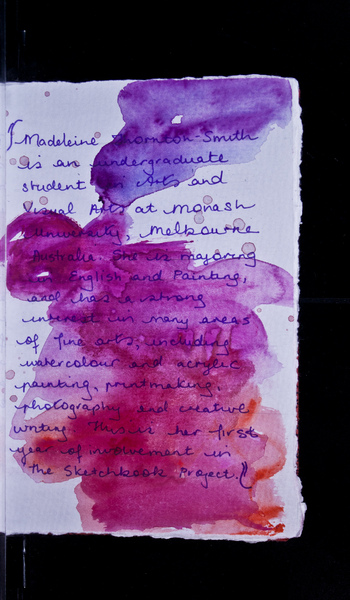 [Madeleine Thornton-Smith
is an undergraduate
student in Arts and
Visual Arts at Monash
University, Melbourne
Australia. She is majoring
in English and Painting,
and has a strong
interest in many areas
of fine arts, including
watercolour and acrylic
painting, printmaking,
photography and creative
writing. This is her first
year of involvement in
the Sketchbook Project.]